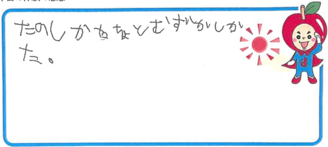 たのしかたちょとむずかしか
た。